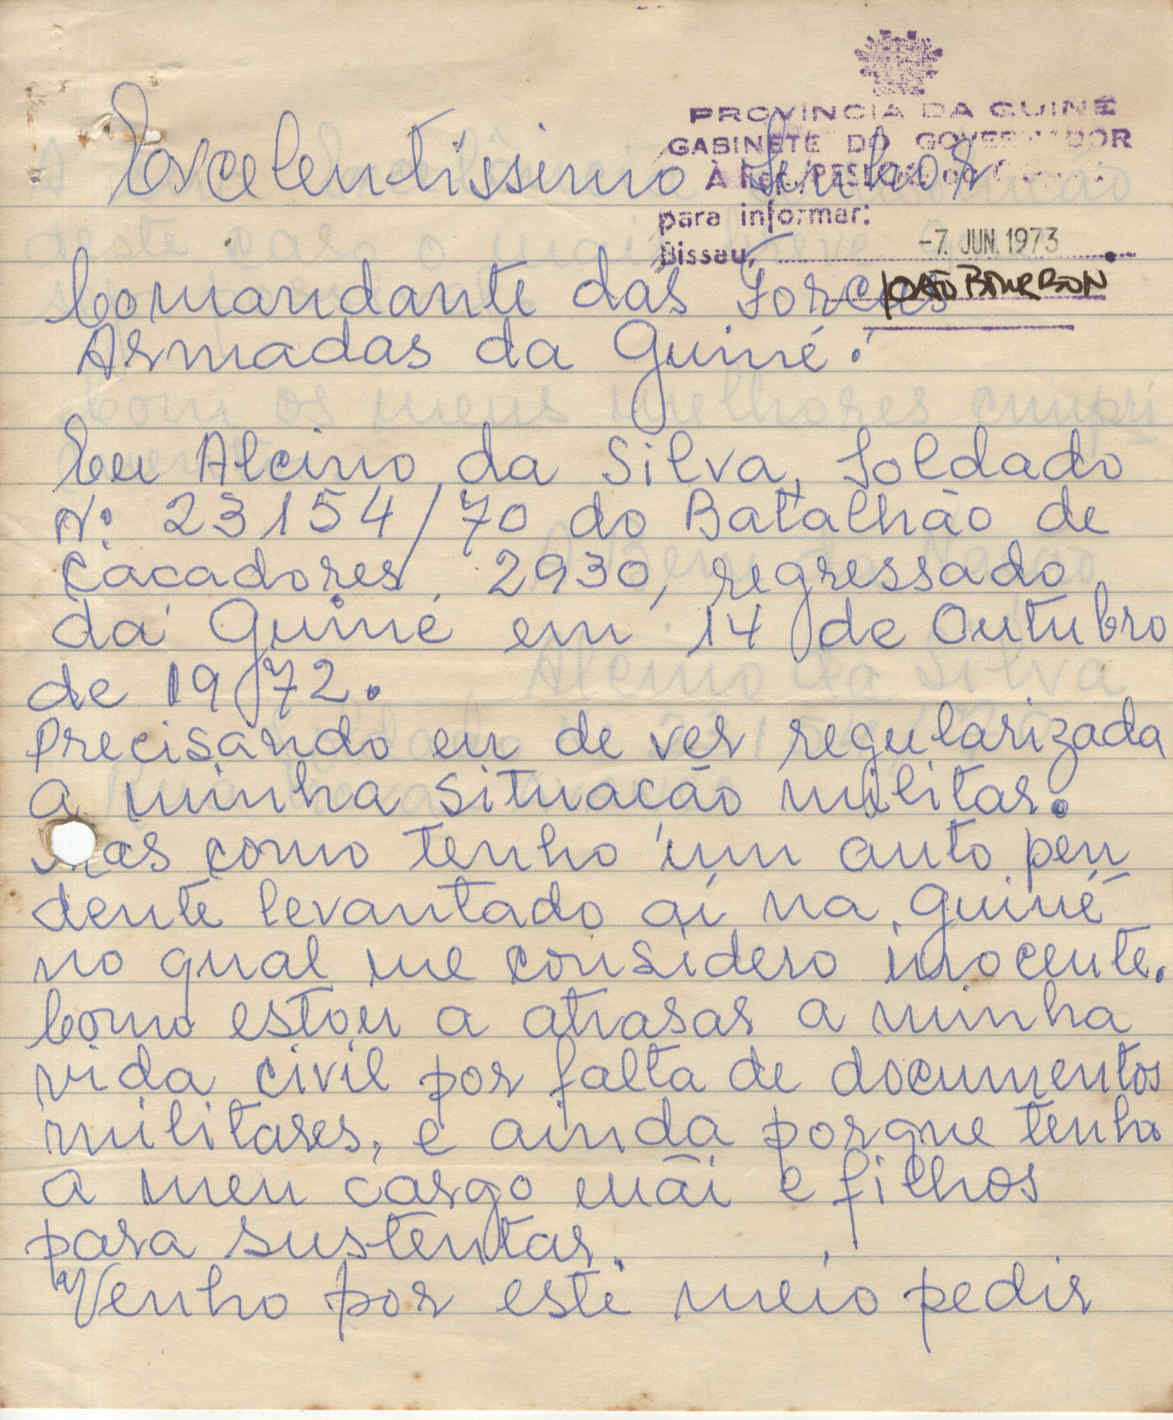 PROVINCIA DA GUINÉ
GABINETE DO GOVERNADOR
À Rep.
para informar:
Bissau, -7. JUN. 1973
JOÃO BOURBON
Excelentíssimo Senhor
Comandante das Forças
Armadas da Guiné.
Eu Alcino da Silva, Soldado
Nº 23154/70 do Batalhão de
Cacadores 2930, regressado
da Guiné em 14 de Outubro
de 1972.
Precisando eu de ver regularizada
a minha situacão militar.
Mas como tenho um auto pen
dente levantado aí na Guiné
no qual me considero inocente.
Como estou a atrasar a minha
vida civil por falta de documentos
militares, e ainda porque tenho
a meu cargo mãi e filhos
para sustentar.
Venho por este meio pedir